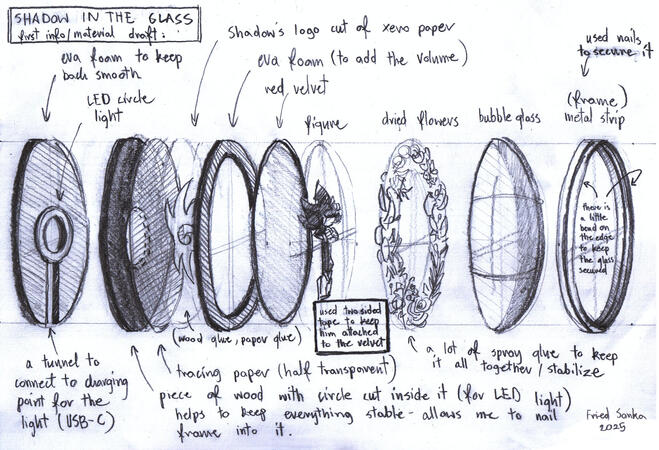 SHADOW IN THE GLASS
first info/material draft:
Shadow's logo cut of xero paper
eva foam to keep
back smooth
eva foam (to add the volume)
used nails
to secure it
LED circle
light
red velvet
(frame)
metal strip
figure
dried flowers
bubble glass
there is
a little
bead on
the edge
to keep
the glass
secured
used two sided
tape to keep
him attached
to the velvet
(wood glue, paper glue)
a lot of spray glue to keep
it all together / stabilize
a tunnel to
connect to charging
point for the
light (USB-C)
tracing paper (half transparent)
piece of wood with circle cut inside it (for LED light)
helps to keep everything stable - allows me to nail
frame into it.
Fried Sanka
2025